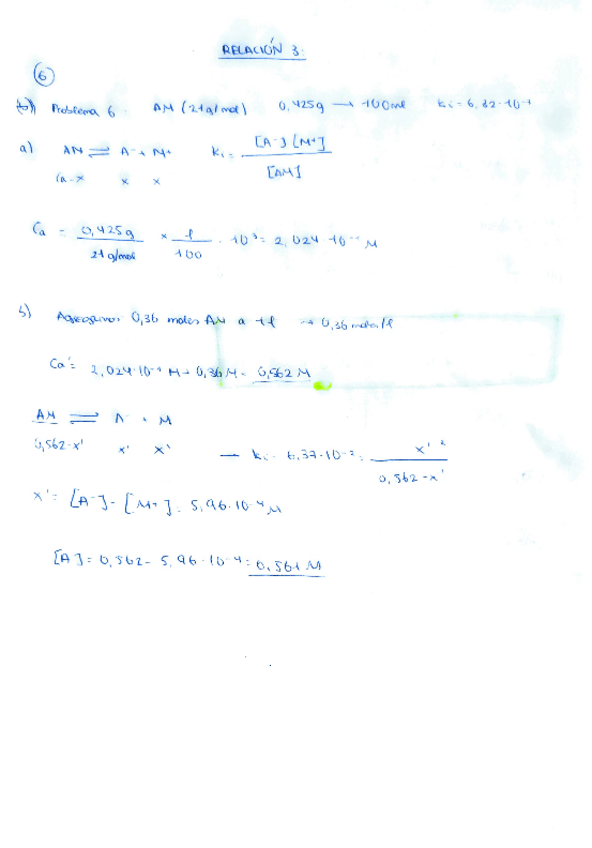 RELACIÓN 3:
6
Problema 6. AM (21g/mol) 0,425g → 100ml Ki = 6,32·10⁻⁷
a) AM ⇌ A⁻ + M⁺ Ki = [A⁻] [M⁺] / [AM]
Ca-x x x
Ca = 0,425g / 21g/mol × 1 / 100 · 10³ = 2,024·10⁻¹ M
b) Agregamos 0,36 moles AM a 1l → 0,36 moles/l
Ca' = 2,024·10⁻¹ M + 0,36 M = 0,562 M
AM ⇌ A + M
0,562-x' x' x' → Ki = x'² / 0,562-x'
x' = [A⁻] = [M⁺] = 5,96·10⁻⁴ M
[A] = 0,562 - 5,96·10⁻⁴ = 0,561 M